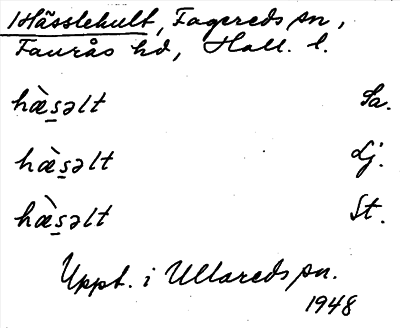 Hässlehult, Fagereds sn,
Faurås hd, Hall. l.
hæ̀s̲əlt Sa.
hæ̀s̲əlt Lj.
hæ̀s̲əlt St.
Uppt. i Ullareds sn.
1948